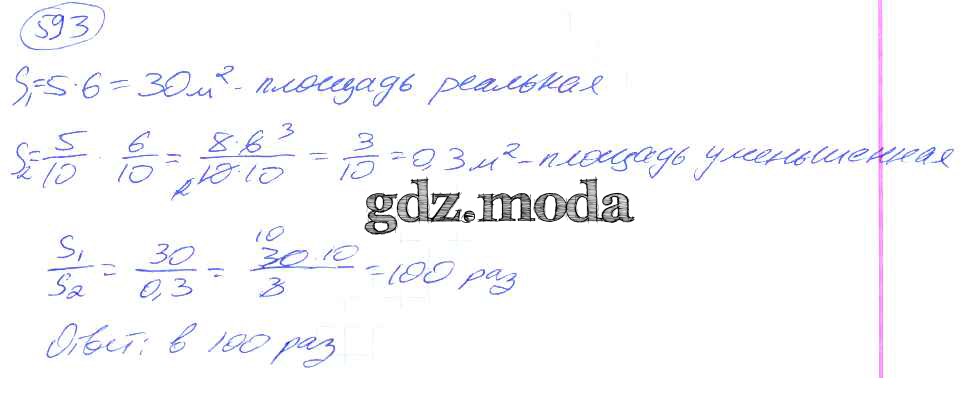 593
S₁=5·6=30м² - площадь реальная
S₂=5/10 · 6/10 = 5·6 3/2 10·10 = 3/10 = 0,3м² - площадь уменьшенная
gdz.moda
S₁/S₂ = 30/0,3 = 10 30·10/3 = 100 раз
Ответ: в 100 раз